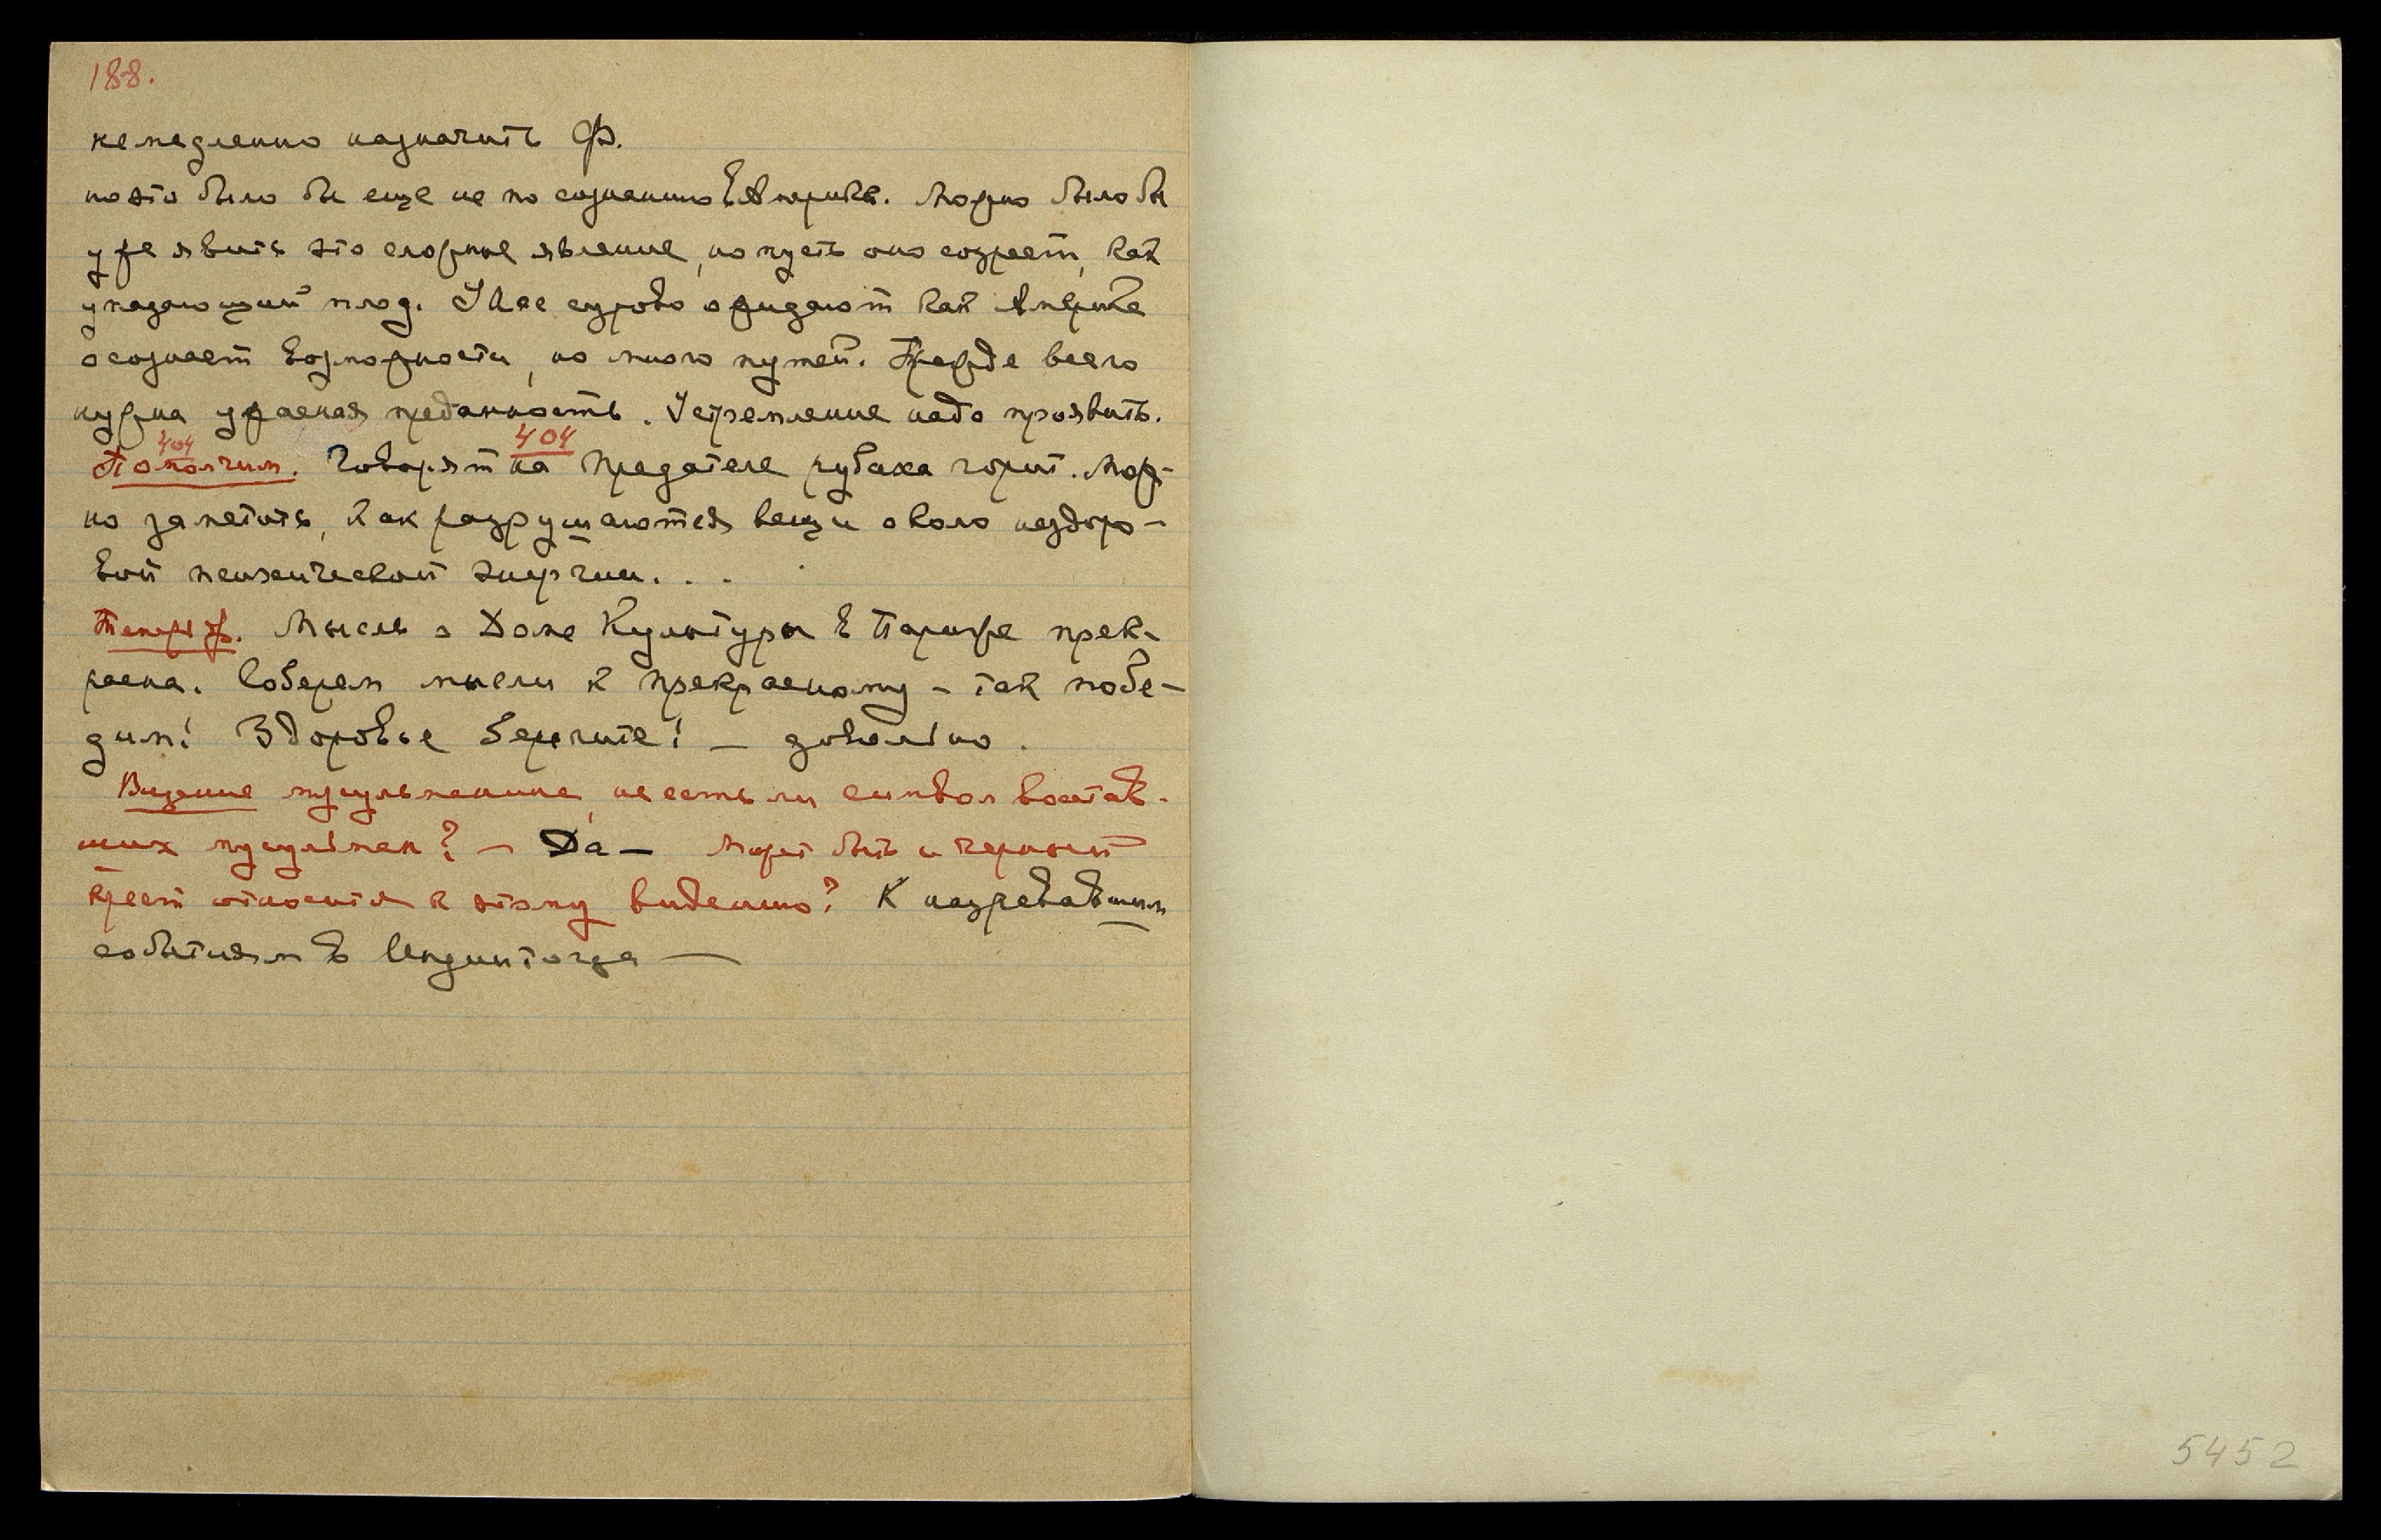 188.
немедленно назначить Ф.
но это было бы еще не по сознанию в Америке. Можно было бы
уже явить это сложное явление, но пусть оно созреет, как
упадающий плод. У Нас сурово ожидают как Америка
осознает возможности, но много путей. Прежде всего
нужна ужасная преданность. Устремление надо проявить.
404 404
Помолчим. Говорят на предателе рубаха горит. Мож-
но заметить, как разрушаются вещи около нездоро-
вой психической энергии. . .
Теперь др. Мысль о Доме Культуры в Париже прек-
расна. Соберем мысли к прекрасному - так побе-
дим! Здоровье берегите! — довольно.
Видение мусульманина, не есть ли символ восстав-
ших мусульман? — Да — Может быть и черный
крест относится к этому видению? К назревавшим
событиям в
5452